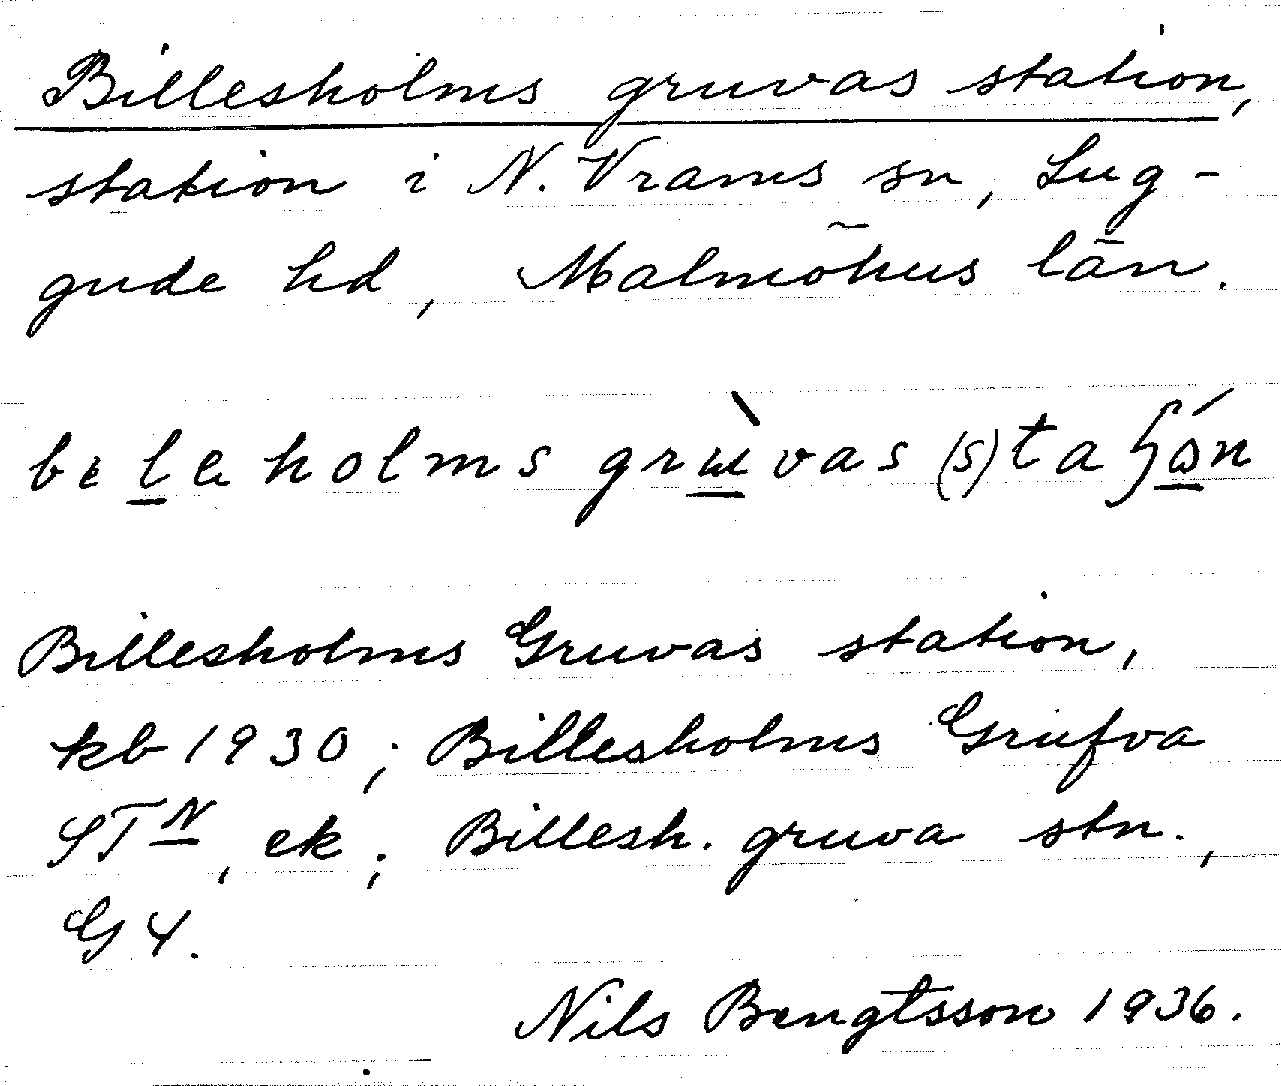 Billesholms gruvas station,
station i N. Vrams sn, Lug-
gude hd, Malmöhus län.
bɛl̲eholms grɯ̲̀vas (s)taʃɔ̲́n
Billesholms Gruvas station,
kb 1930; Billesholms Grufva
STN, ek; Billesh. gruva stn.,
G4.
Nils Bengtsson 1936.